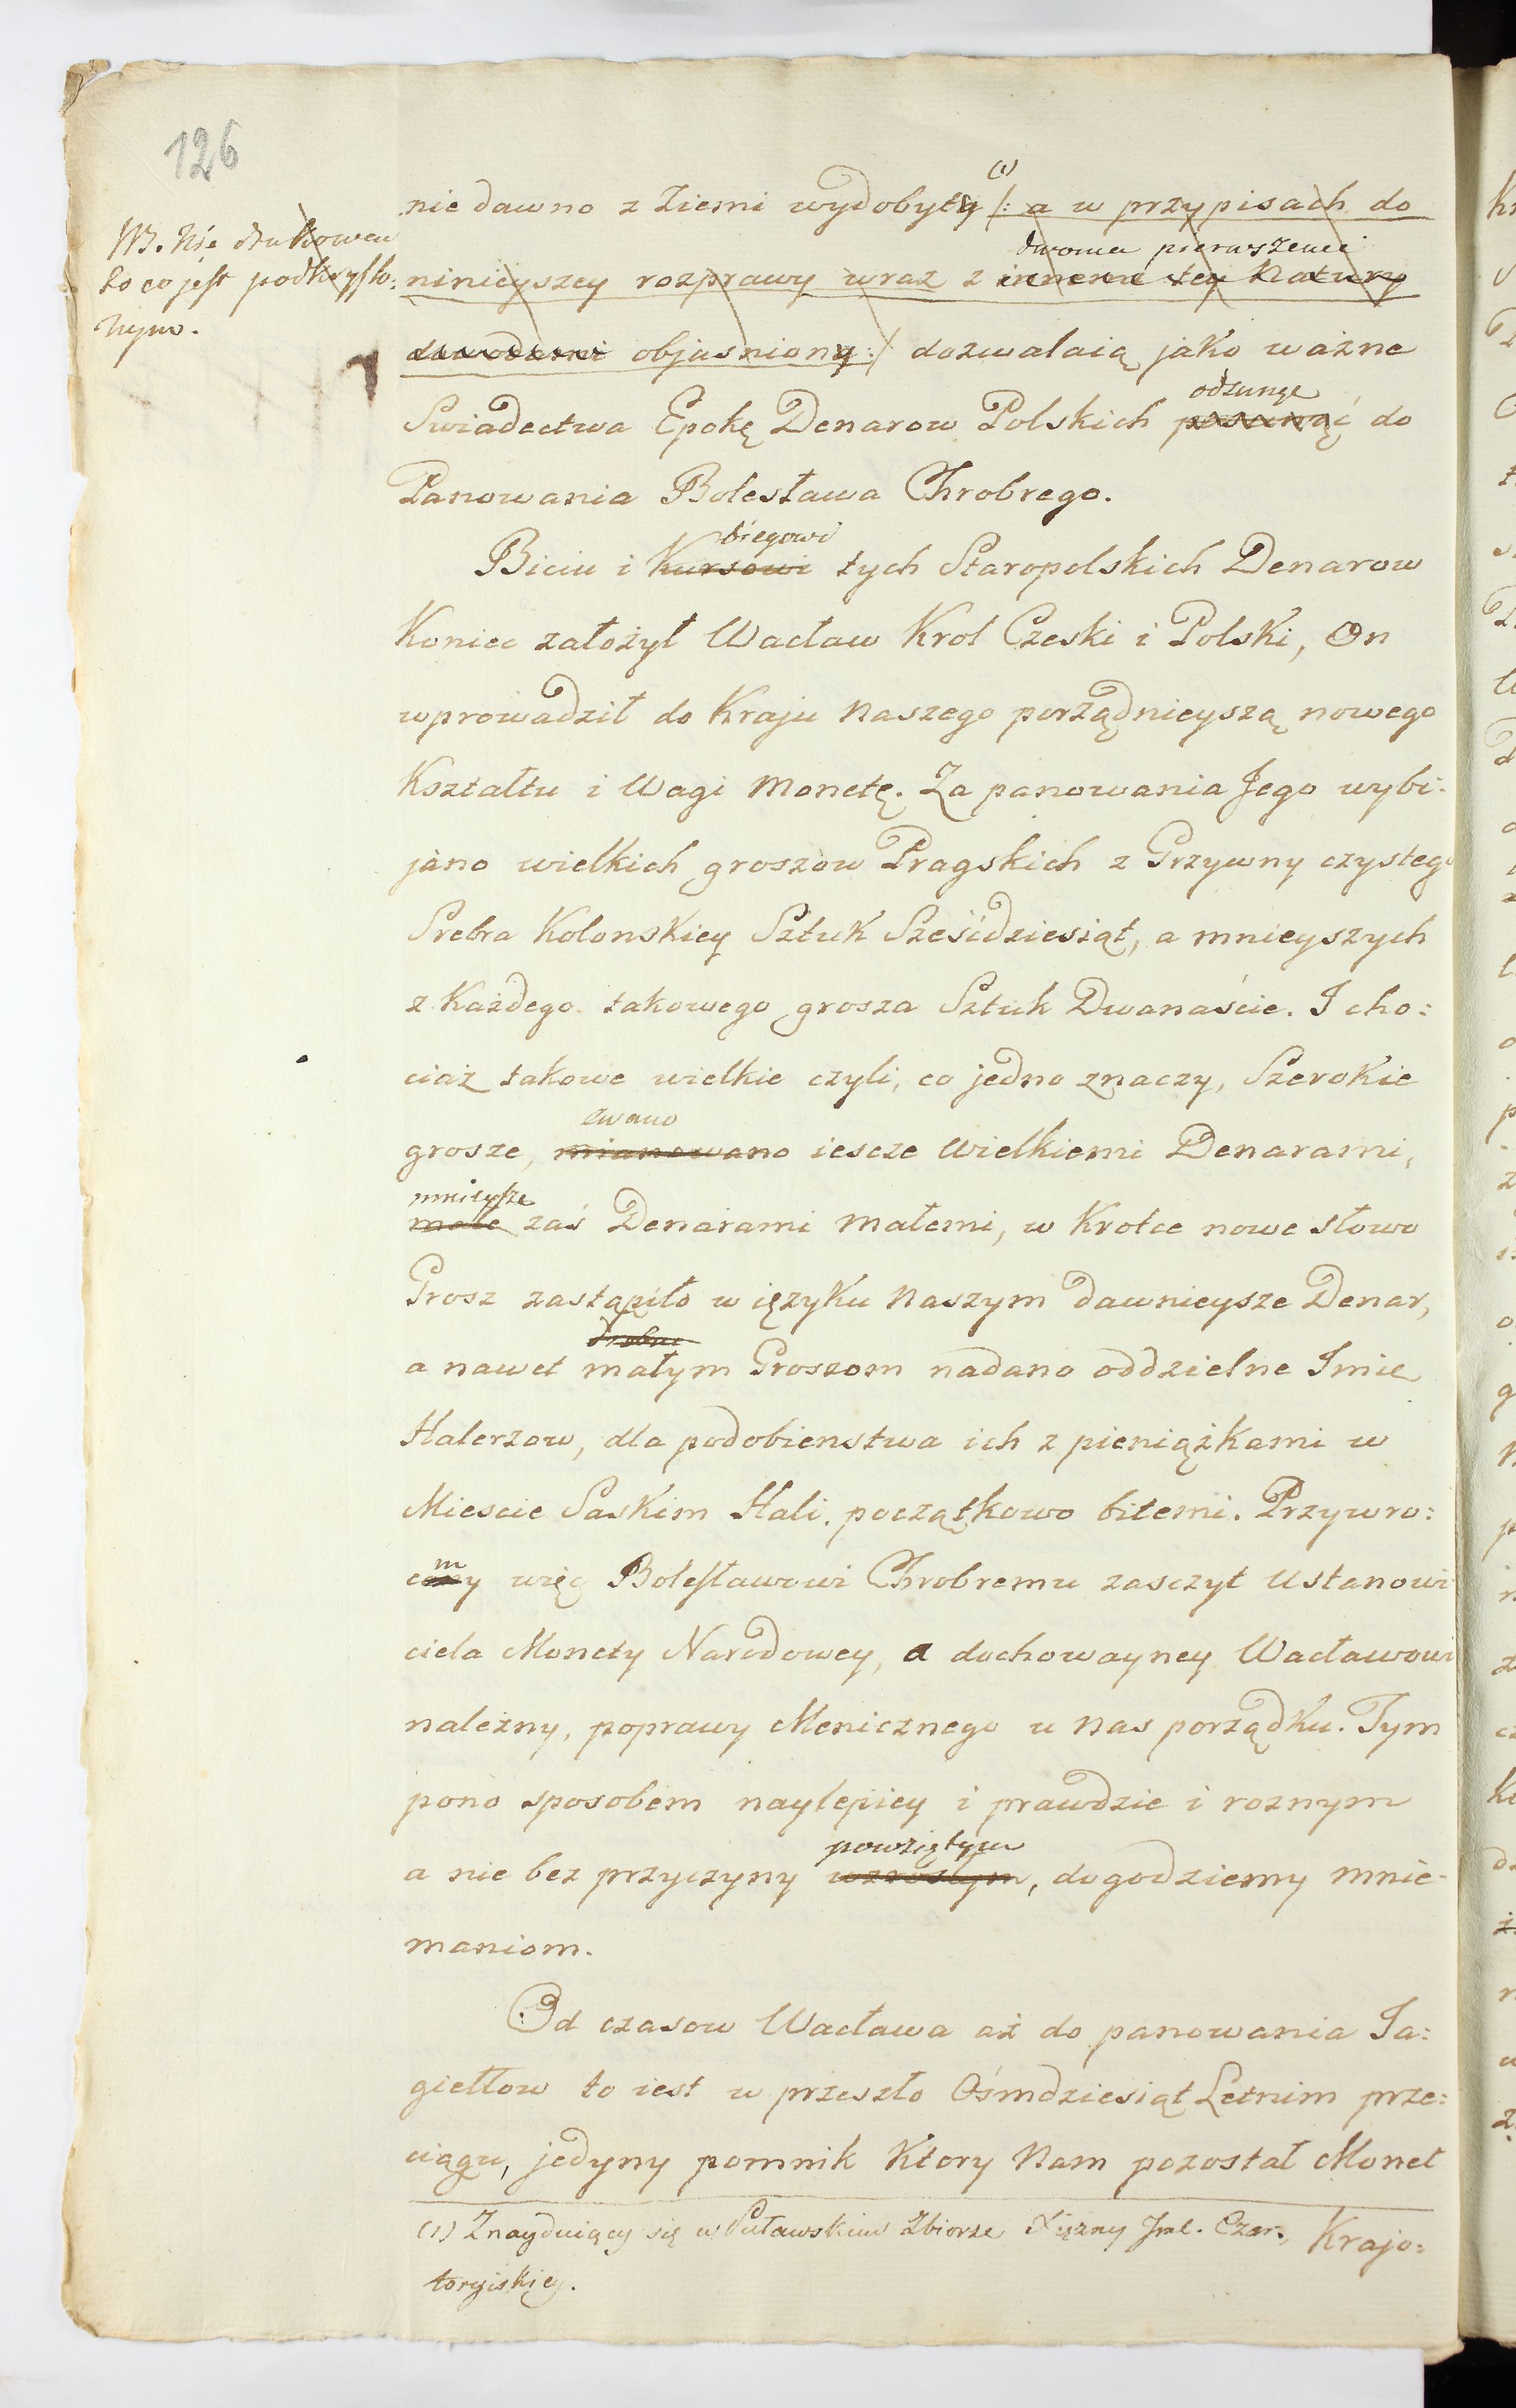 126
NB. Nie drukować
to co jest podkryślo:
nym.
(1)
nie dawno z Ziemi wydobyty /: a w przypisach do
dwoma pierwszemi
ninieyszey rozprawy wraz z innemi tey Natury
dowodami objasniony :/ dozwalaią jako ważne
odsunąć
Swiadectwa Epokę Denarow Polskich posunąć do
Panowania Bolesława Chrobrego.
biegowi
Biciu i Kursowi tych Staropolskich Denarow
Koniec założył Wacław Krol Czeski i Polski, On
wprowadził do Kraju Naszego porządnieyszą nowego
Kształtu i Wagi Monetę. Za panowania Jego wybi:
jano wielkich groszow Pragskich z Grzywny czystego
Srebra Kolonskiey Sztuk Sześćdziesiąt, a mnieyszych
z Każdego takowego grosza Sztuk Dwanaście. I cho:
ciaż takowe wielkie czyli, co jedno znaczy, Szerokie
zwano
grosze, mianowano iescze Wielkiemi Denarami,
mnieysze
małe zaś Denarami Małemi, w Krotce nowe słowo
Grosz zastąpiło w ięzyku Naszym dawnieysze Denar,
drobne
a nawet małym Groszom nadano oddzielne Imie
Halerzow, dla podobienstwa ich z pieniążkami w
Miescie Saskim Hali. początkowo bitemi. Przywro:
m
cmy więc Bolesławowi Chrobremu zasczyt Ustanowi
ciela Monety Narodowey, a dochowayney Wacławowi
należny, poprawy Menicznego u Nas porządku. Tym
pono sposobem naylepiey i prawdzie i roznym
powziętym
a nie bez przyczyny wzrosłym, dogodziemy mnie-
maniom.
Od czasow Wacława aż do panowania Ja:
giełłow to iest w przeszło Ośmdziesiąt Letnim prze:
ciągu, jedyny pomnik Ktory Nam pozostał Monet
(1) Znayduiący się w Puławskim Zbiorze Xiężny Jml. Czar:
toryiskiey.
Krajo: